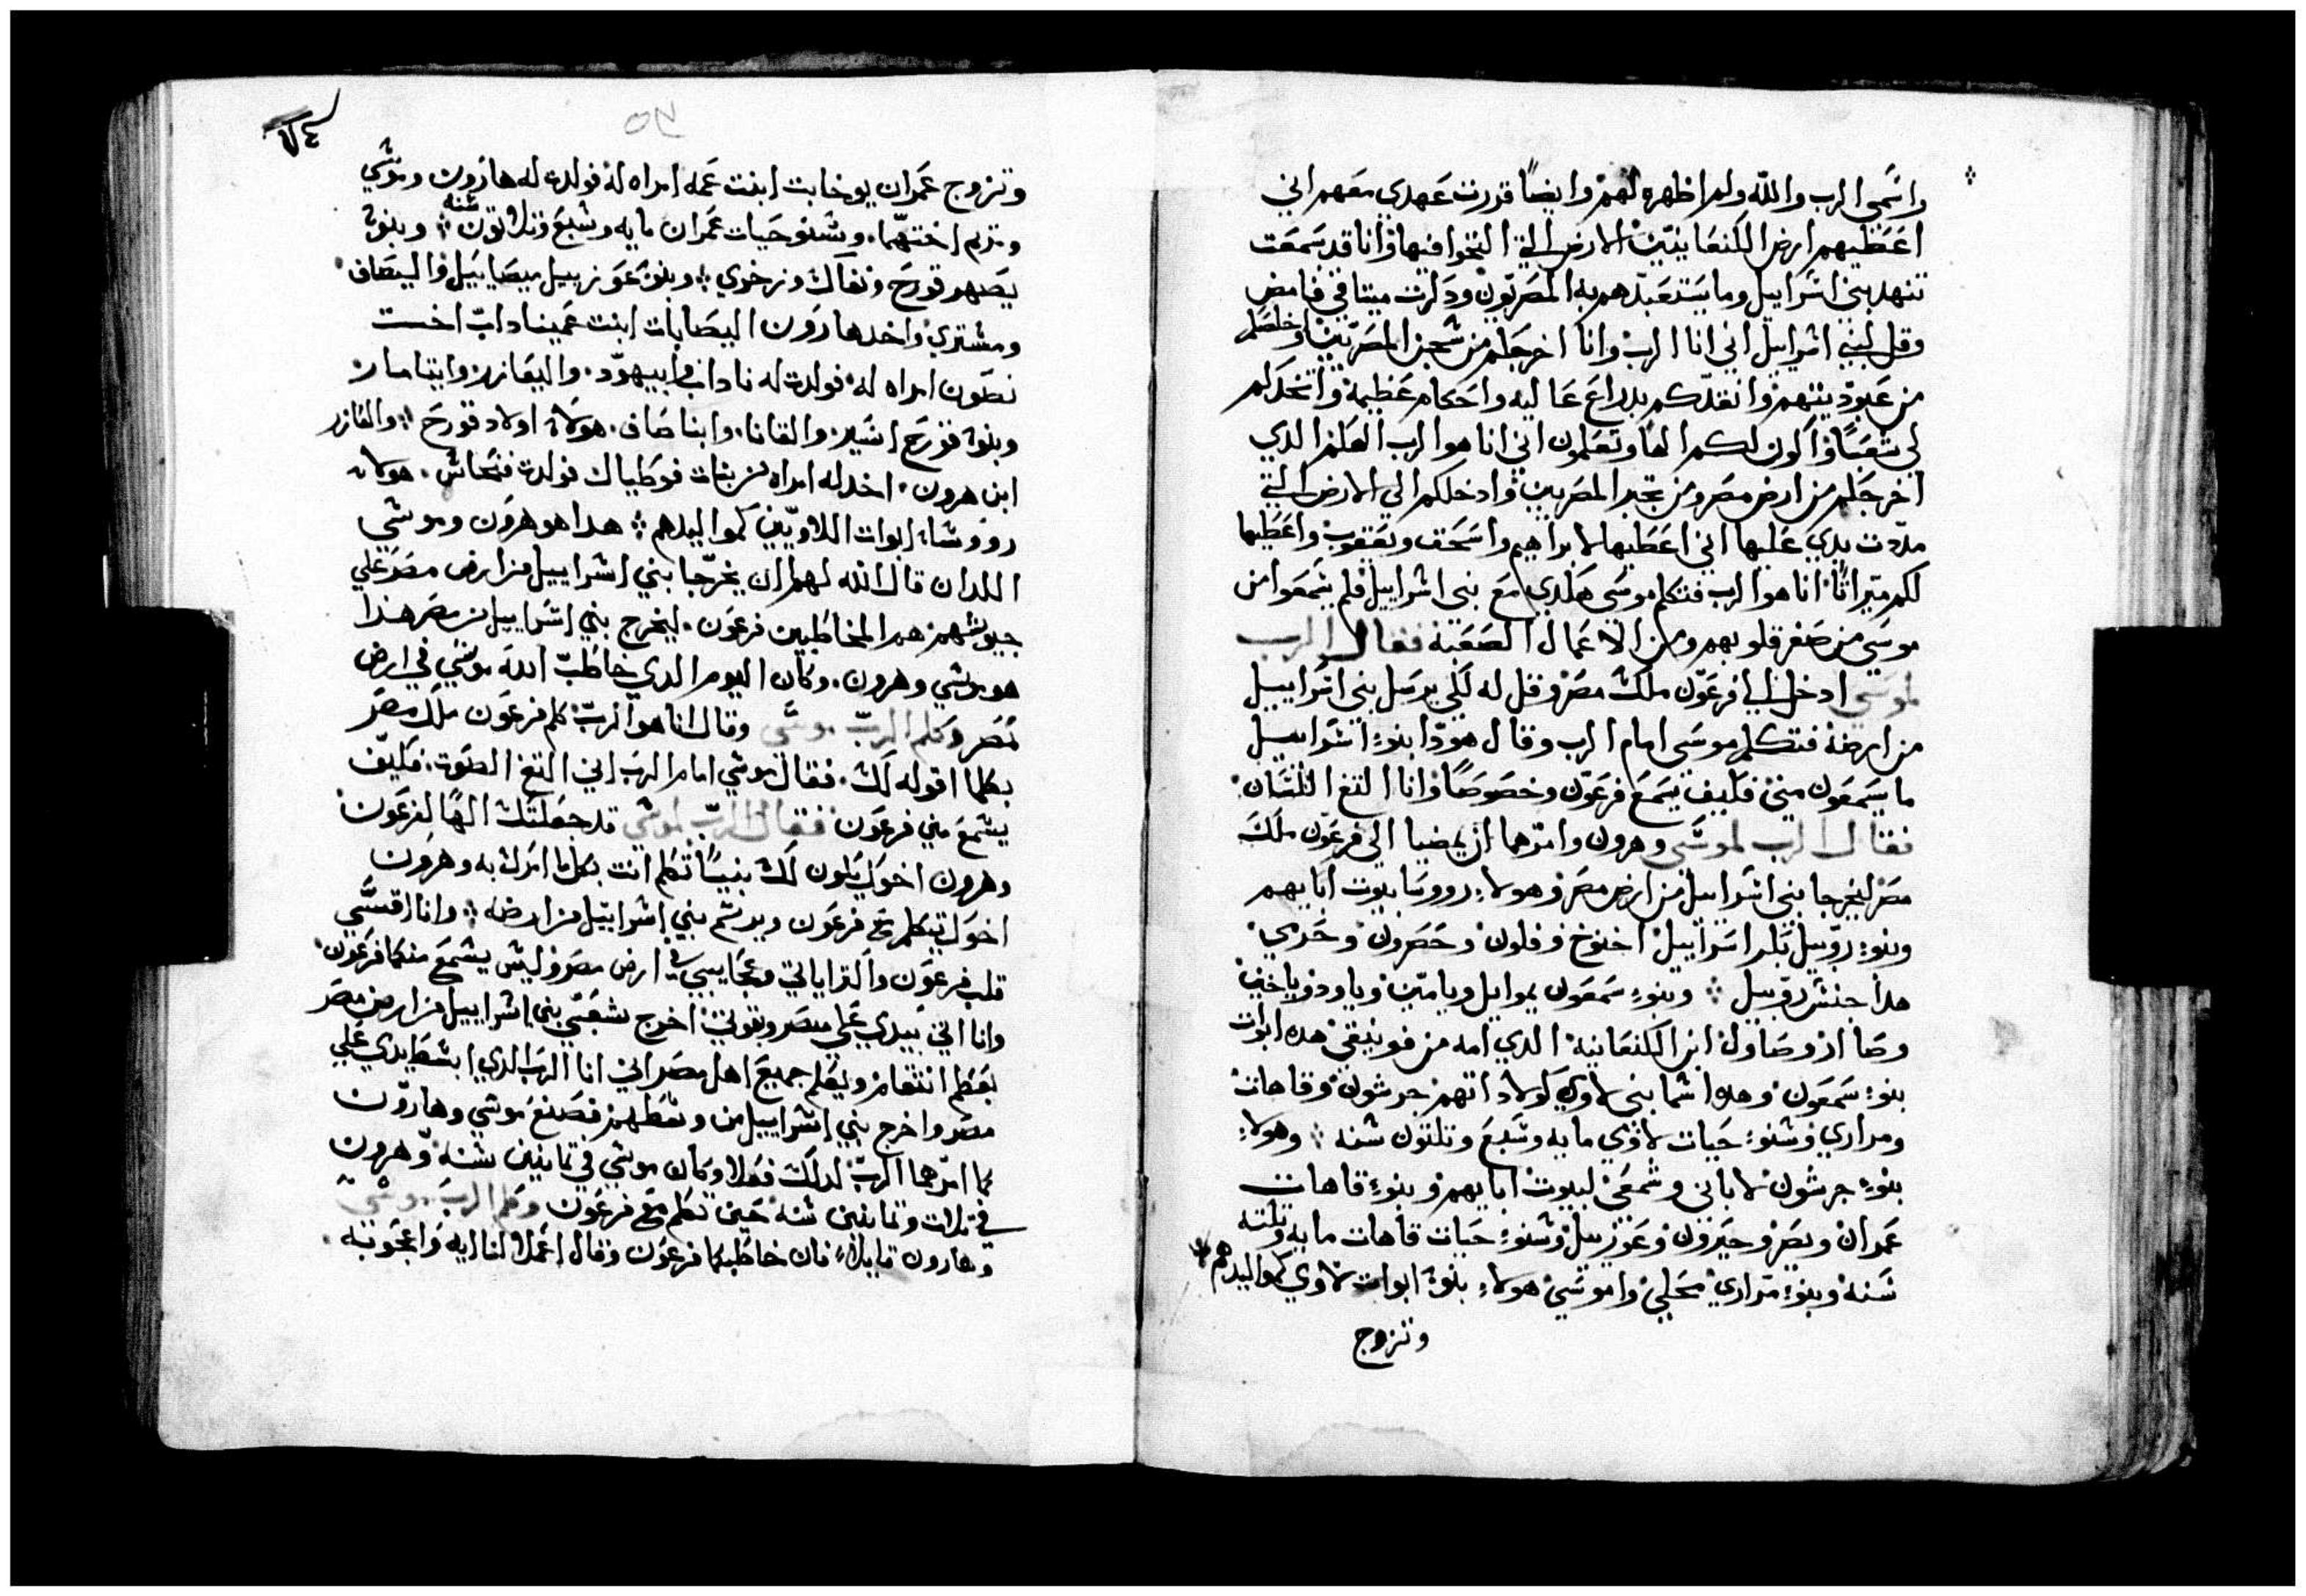 واسمي الرب والله ولم اظهره لهم وايضا قررت عهدي معهم اني
اعطيهم ارض الكنعانيين الارض التي التجوا فيها وانا قد سمعت
تنهد بني اسراييل وما يستعبدهم به المصريون ودكرت ميتاقي فامض
وقل لبني اسراييل اني انا الرب وانا اخرجكم من سجن المصريين واخلصكم
من عبوديتهم وانقدكم بدراع عاليه واحكام عظيمة واتخدكم
لي شعبا واكون لكم الها وتعلمون اني انا هو الرب الهكم الدي
اخرجكم من ارض مصر ومن تجبر المصريين وادخلكم الي الارض التي
مددت يدي عليها اني اعطيها لابراهيم واسحق ويعقوب واعطيها
لكم ميراثا انا هو الرب فتكلم موسى هكدي مع بني اسراييل فلم يسمعوا من
موسى من صغر قلوبهم ومن الاعمال الصعبة فقال الرب
لموسي ادخل الي فرعون ملك مصر وقل له لكي يرسل بني اسراييل
من ارضه فتكلم موسى امام الرب وقال هودا بنو اسراييل
ما يسمعون مني فكيف يسمع فرعون وخصوصا وانا التغ اللسان
فقال الرب لموسى وهرون وامرهما ان يمضيا الي فرعون ملك
مصر ليخرجا بني اسراييل من ارض مصر وهولاء رووسا بيوت ابايهم
وبنو روبيل بكر اسراييل اخنوخ وفلون وحصرون وحرمي
هدا جنس روبيل وبنو سمعون يموايل ويامين وياود وياخين
وصاار وصاول ابن الكنعانية الدي امه من فونيقي هده ابوات
بنو سمعون وهدا اسما بني لاوي كولاداتهم جرشون وقاهات
ومراري وسنو حيات لاوي مايه وسبع وتلتون سنه وهولاء
بنو جرشون لاباني وشمعي لبيوت ابايهم وبنو قاهات
عمران ويصهر وحبرون وعوزييل وسنو حيات قاهات مايه وتلته
سنه وبنو مراري محلي واموسي هولاء بنو ابوات لاوي كمواليدهم
وتزوج
٧٤
وتزوج عمران يوخابت ابنت عمه امراه له فولدت له هارون وموسي
ومريم اختهما وسنو حيات عمران مايه وسبع وتلاتون سنه وبنو
يصهر قورح ونفاك وزخري وبنو عوزييل ميصاييل واليصاف
ومشتري واخد هارون اليصابات ابنت عميناداب اخت
نصون امراه له فولدت له ناداب وابيهود واليعازر وايتامار
وبنو قورح اسير والقانا وابناصاف هولاء اولاد قورح والعازر
ابن هرون اخد له امراه من بنات فوطياك فولدت فنحاس هولاء
رووساء ابوات اللاويين كمواليدهم هدا هو هرون وموسي
اللدان قال الله لهم ان يخرجا بني اسراييل من ارض مصر علي
جيوشهم هم المخاطبين فرعون ليخرج بني اسراييل من مصر هدا
هو موسي وهرون وكان اليوم الدي خاطب الله موسي في ارض
مصر وكلم الرب موسي وقال انا هو الرب كلم فرعون ملك مصر
بكلما اقوله لك فقال موسي امام الرب اني التغ الصوت فكيف
يسمع مني فرعون فقال الرب لموسي قد جعلتك الها لفرعون
وهرون اخوك يكون لك نبيا تكلم انت بكلما امرك به وهرون
اخوك يتكلم مع فرعون ويرسل بني اسراييل من ارضه وانا اقسي
قلب فرعون واكتر اياتي وعجايبي في ارض مصر وليس يسمع منكما فرعون
وانا القي بيدي علي مصر وبقوتي اخرج شعبي بني اسراييل من ارض مصر
بعظم انتقام ويعلم جميع اهل مصر اني انا الرب الدي ابسط يدي علي
مصر واخرج بني اسراييل من وسطهم فصنع موسي وهارون
كما امرهما الرب لدلك فعلا وكان موسي في تمانين سنه وهرون
في تلات وتمانين سنه حين تكلم مع فرعون وكلم الرب موسي
وهارون قايلا فان خاطبكما فرعون وقال اعملا لنا ايه واعجوبه